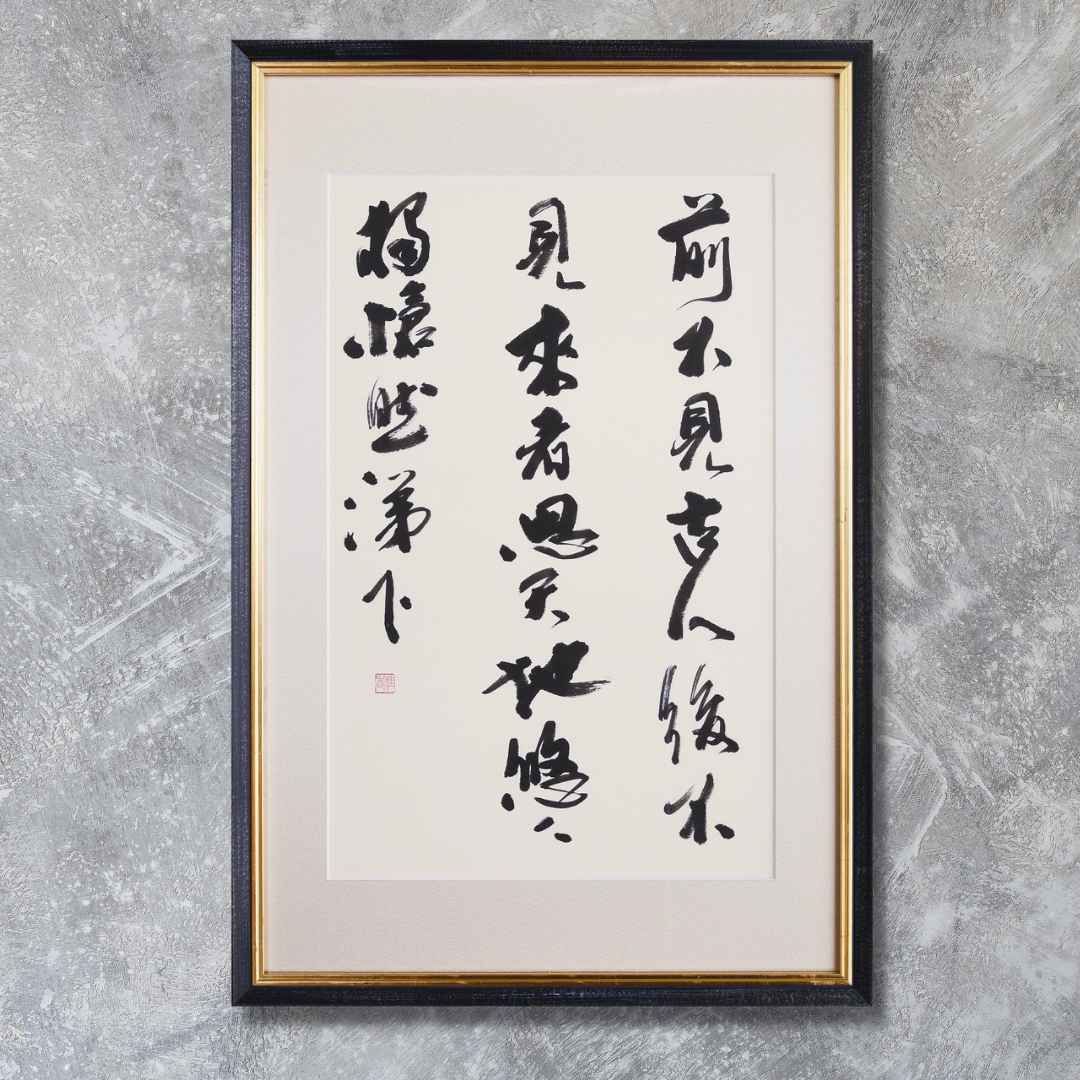 前不見古人後不
見來者思天地悠々
獨愴然涕下